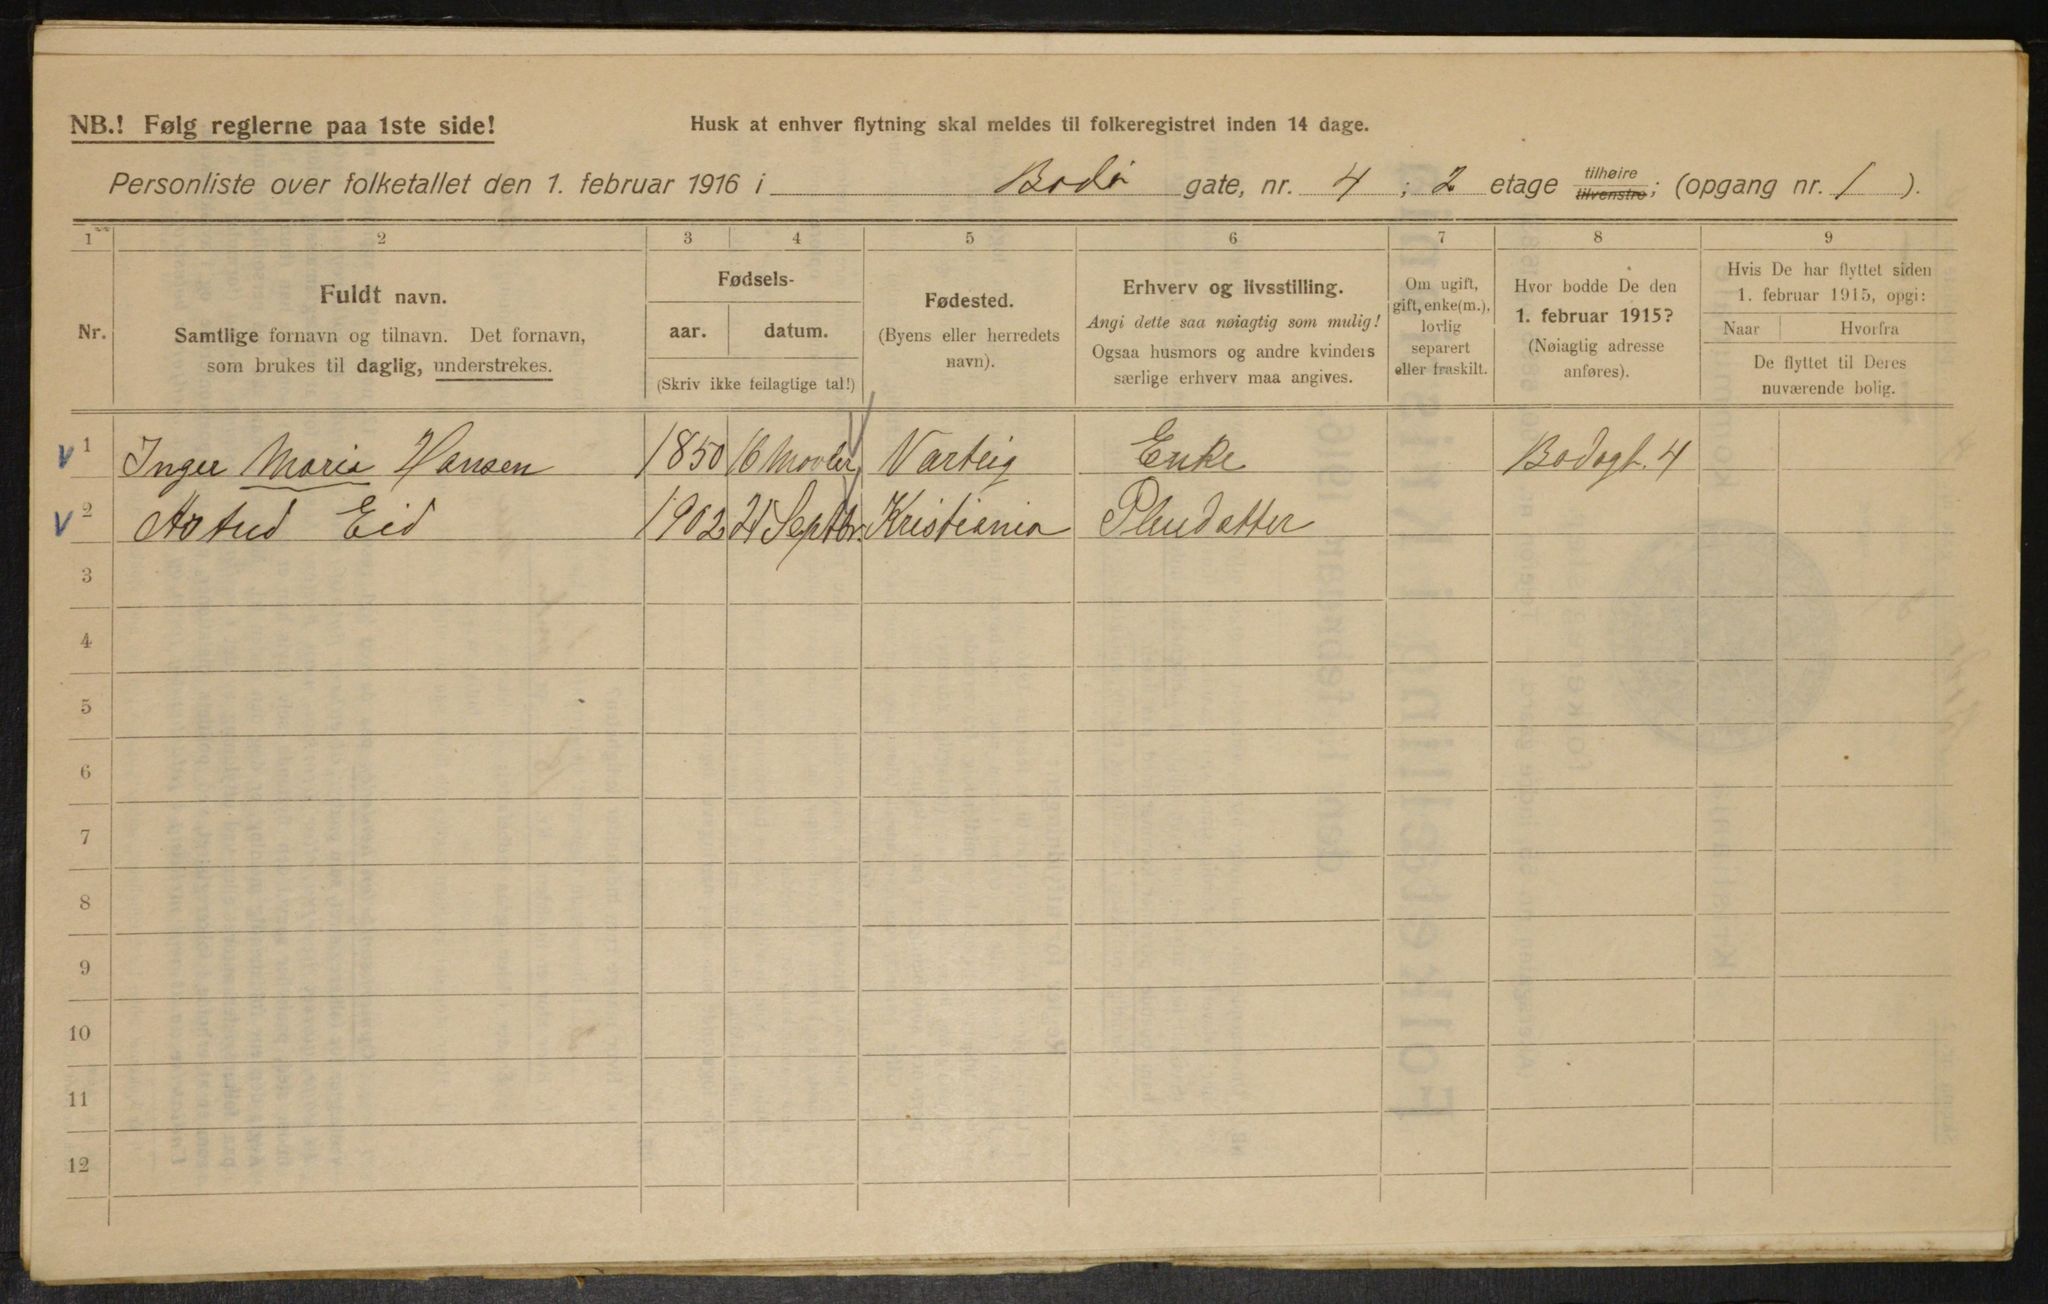 NB.! Følg reglerne paa 1ste side!
Husk at enhver flytning skal meldes til folkeregistret inden 14 dage.
Personliste over folketallet den 1. februar 1916 i Bodø gate, nr. 4 ; 2 etage tilhøire tilvenstre; (opgang nr. 1 ).
1 2 3 4 5 6 7 8 9
Nr.
Fuldt navn.
Samtlige fornavn og tilnavn. Det fornavn,
som brukes til daglig, understrekes.
Fødsels-
aar. datum.
(Skriv ikke feilagtige tal!)
Fødested.
(Byens eller herredets
navn).
Erhverv og livsstilling.
Angi dette saa nøiagtig som mulig!
Ogsaa husmors og andre kvinders
særlige erhverv maa angives.
Om ugift,
gift, enke(m.),
lovlig
separert
eller fraskilt.
Hvor bodde De den
1. februar 1915?
(Nøiagtig adresse
anføres).
Hvis De har flyttet siden
1. februar 1915, opgi:
Naar Hvorfra
De flyttet til Deres
nuværende bolig.
V 1 Inger Maria Hansen 1850 16 Novber Varteig Enke Bodøgt. 4
V 2 Astrid Eid 1902 21 Septbr. Kristiania Pleiedatter
3
4
5
6
7
8
9
10
11
12